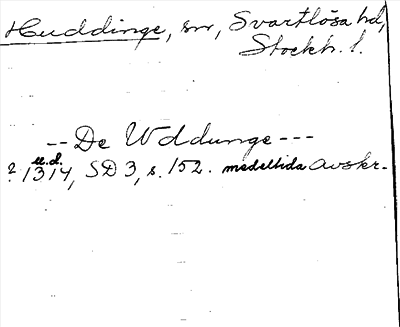 Huddinge, sn, Svartlösa hd,
Stockh. l.
-- De Uddunge ---
u.d.
? 1314, SD 3, s. 152. medeltida Avskr.